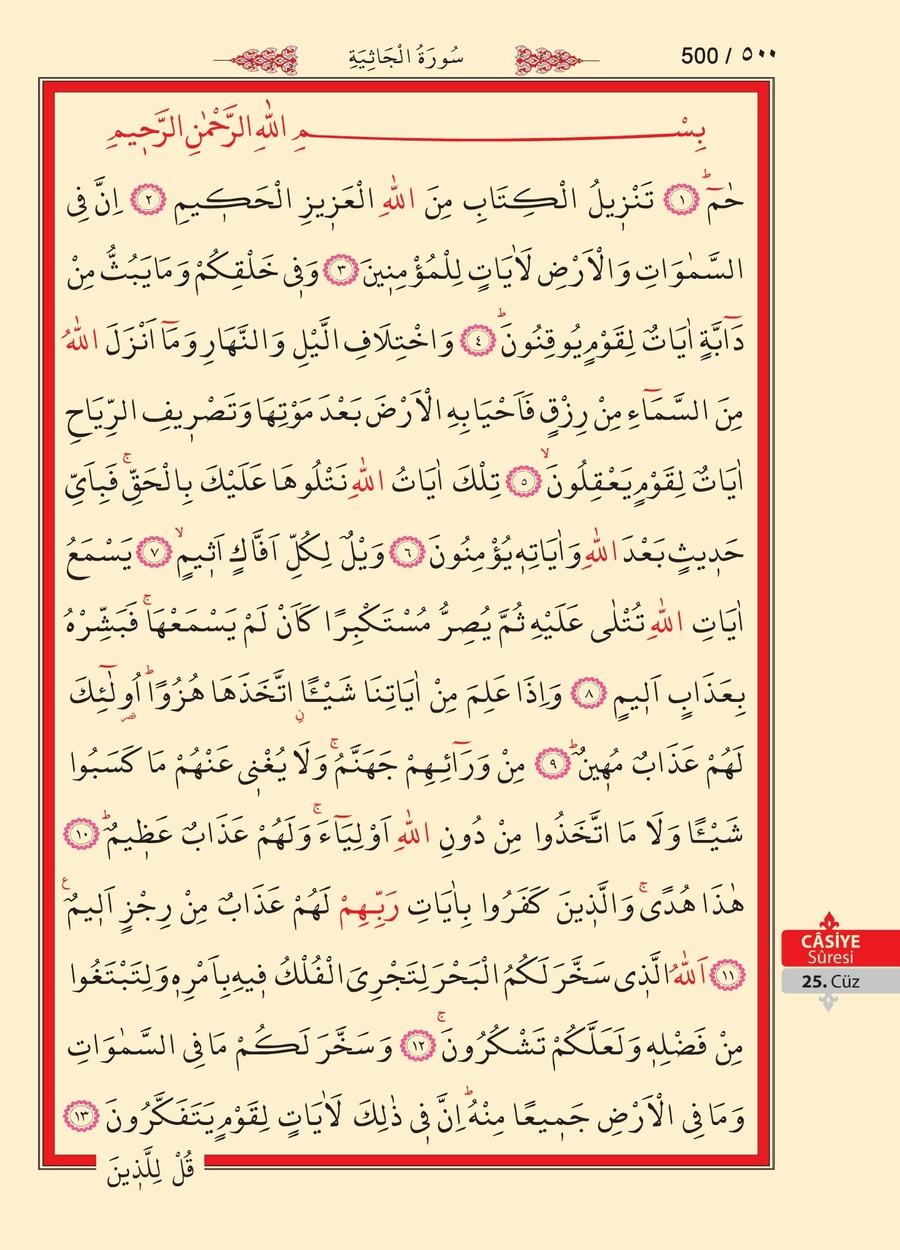 سُورَةُ الْجَاثِيَةِ
500 / ٥٠٠
بِسْمِ اللّٰهِ الرَّحْمٰنِ الرَّح۪يمِ
حٰمٓۜ ﴿١﴾ تَنْز۪يلُ الْكِتَابِ مِنَ اللّٰهِ الْعَز۪يزِ الْحَك۪يمِ ﴿٢﴾ اِنَّ فِي
السَّمٰوَاتِ وَالْاَرْضِ لَاٰيَاتٍ لِلْمُؤْمِن۪ينَ ﴿٣﴾ وَف۪ي خَلْقِكُمْ وَمَا يَبُثُّ مِنْ
دَٓابَّةٍ اٰيَاتٌ لِقَوْمٍ يُوقِنُونَۜ ﴿٤﴾ وَاخْتِلَافِ الَّيْلِ وَالنَّهَارِ وَمَٓا اَنْزَلَ اللّٰهُ
مِنَ السَّمَٓاءِ مِنْ رِزْقٍ فَاَحْيَا بِهِ الْاَرْضَ بَعْدَ مَوْتِهَا وَتَصْر۪يفِ الرِّيَاحِ
اٰيَاتٌ لِقَوْمٍ يَعْقِلُونَۙ ﴿٥﴾ تِلْكَ اٰيَاتُ اللّٰهِ نَتْلُوهَا عَلَيْكَ بِالْحَقِّۚ فَبِاَيِّ
حَد۪يثٍ بَعْدَ اللّٰهِ وَاٰيَاتِه۪ يُؤْمِنُونَ ﴿٦﴾ وَيْلٌ لِكُلِّ اَفَّاكٍ اَث۪يمٍۙ ﴿٧﴾ يَسْمَعُ
اٰيَاتِ اللّٰهِ تُتْلٰى عَلَيْهِ ثُمَّ يُصِرُّ مُسْتَكْبِرًا كَاَنْ لَمْ يَسْمَعْهَاۚ فَبَشِّرْهُ
بِعَذَابٍ اَل۪يمٍ ﴿٨﴾ وَاِذَا عَلِمَ مِنْ اٰيَاتِنَا شَيْـًٔاۨ اتَّخَذَهَا هُزُوًاۜ اُو۬لٰٓئِكَ
لَهُمْ عَذَابٌ مُه۪ينٌۜ ﴿٩﴾ مِنْ وَرَٓائِهِمْ جَهَنَّمُۚ وَلَا يُغْن۪ي عَنْهُمْ مَا كَسَبُوا
شَيْـًٔا وَلَا مَا اتَّخَذُوا مِنْ دُونِ اللّٰهِ اَوْلِيَٓاءَۚ وَلَهُمْ عَذَابٌ عَظ۪يمٌۜ ﴿١٠﴾
هٰذَا هُدًىۚ وَالَّذ۪ينَ كَفَرُوا بِاٰيَاتِ رَبِّهِمْ لَهُمْ عَذَابٌ مِنْ رِجْزٍ اَل۪يمٌ۟
﴿١١﴾ اَللّٰهُ الَّذ۪ي سَخَّرَ لَكُمُ الْبَحْرَ لِتَجْرِيَ الْفُلْكُ ف۪يهِ بِاَمْرِه۪ وَلِتَبْتَغُوا
مِنْ فَضْلِه۪ وَلَعَلَّكُمْ تَشْكُرُونَۚ ﴿١٢﴾ وَسَخَّرَ لَكُمْ مَا فِي السَّمٰوَاتِ
وَمَا فِي الْاَرْضِ جَم۪يعًا مِنْهُۜ اِنَّ ف۪ي ذٰلِكَ لَاٰيَاتٍ لِقَوْمٍ يَتَفَكَّرُونَ ﴿١٣﴾
قُلْ لِلَّذ۪ينَ
CÂSİYE
Sûresi
25. Cüz